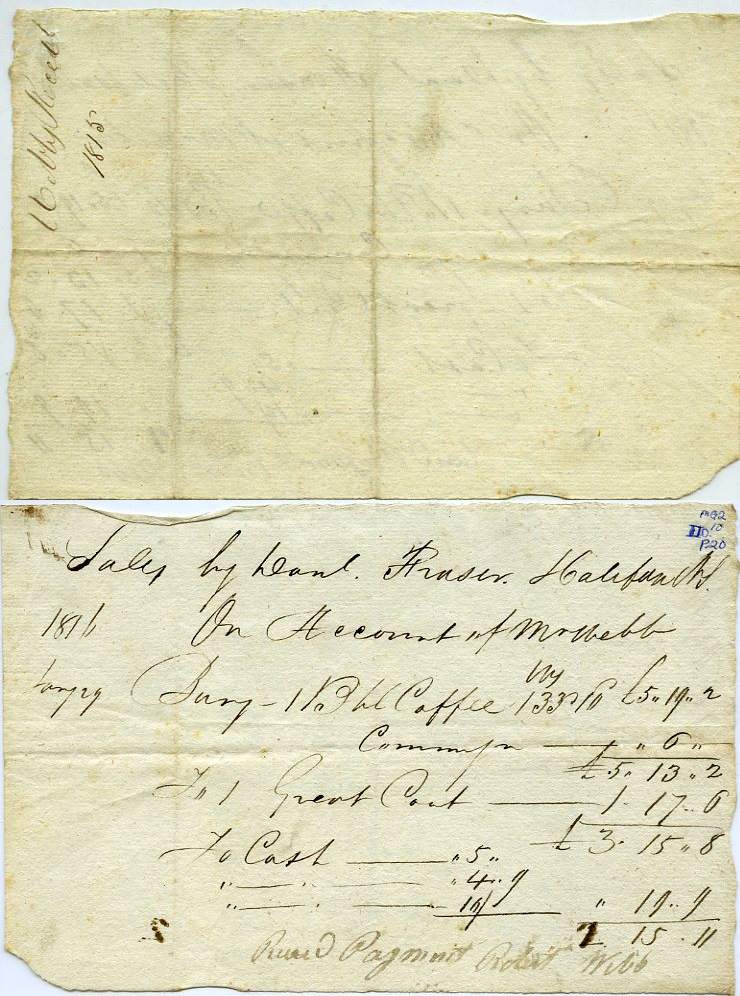 Webb
1815
PG2
10
IID.
P20
Sales by Danl. Fraser. Halifax NS.
1816 On Account of Mr Webb
Jany 29 Sundy - 1 Bbl Coffee Wg 133 lb £5 " 19 " 2
Commisn — " 6 "
£ 5 " 13 " 2
To 1 Great Coat — 1 " 17 " 6
£ 3 " 15 " 8
To Cash — " 5 "
" — " — " 4 " 9
" — " — 10/ — " 19 " 9
£ 2 15 " 11
Payment Robert Webb